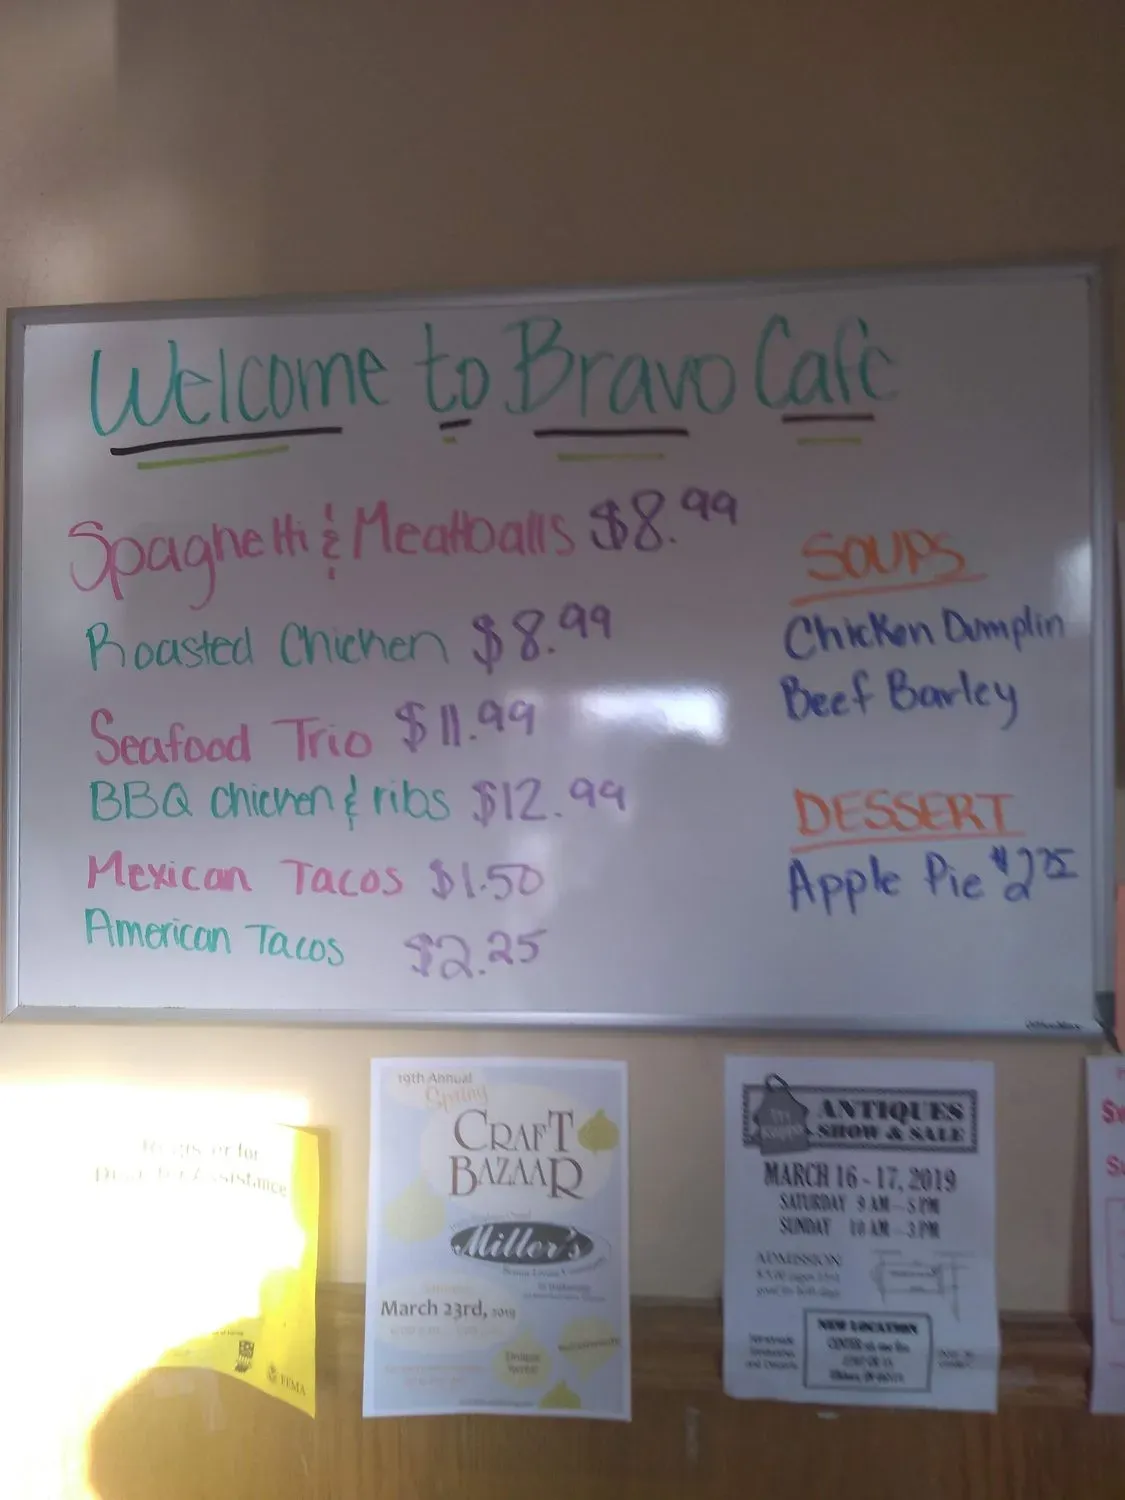 Welcome to Bravo Cafe
Spaghetti & Meatballs $8.99
Roasted Chicken $8.99
Seafood Trio $11.99
BBQ chicken & ribs $12.99
Mexican Tacos $1.50
American Tacos $2.25
SOUPS
Chicken Dumplin
Beef Barley
DESSERT
Apple Pie $2.25
Register for
Assistance
FEMA
19th Annual
Spring
CRAFT
BAZAAR
Miller's
March 23rd, 2019
ANTIQUES
SHOW & SALE
MARCH 16 - 17, 2019
SATURDAY 9 AM - 5 PM
SUNDAY 10 AM - 3 PM
ADMISSION
NEW LOCATION